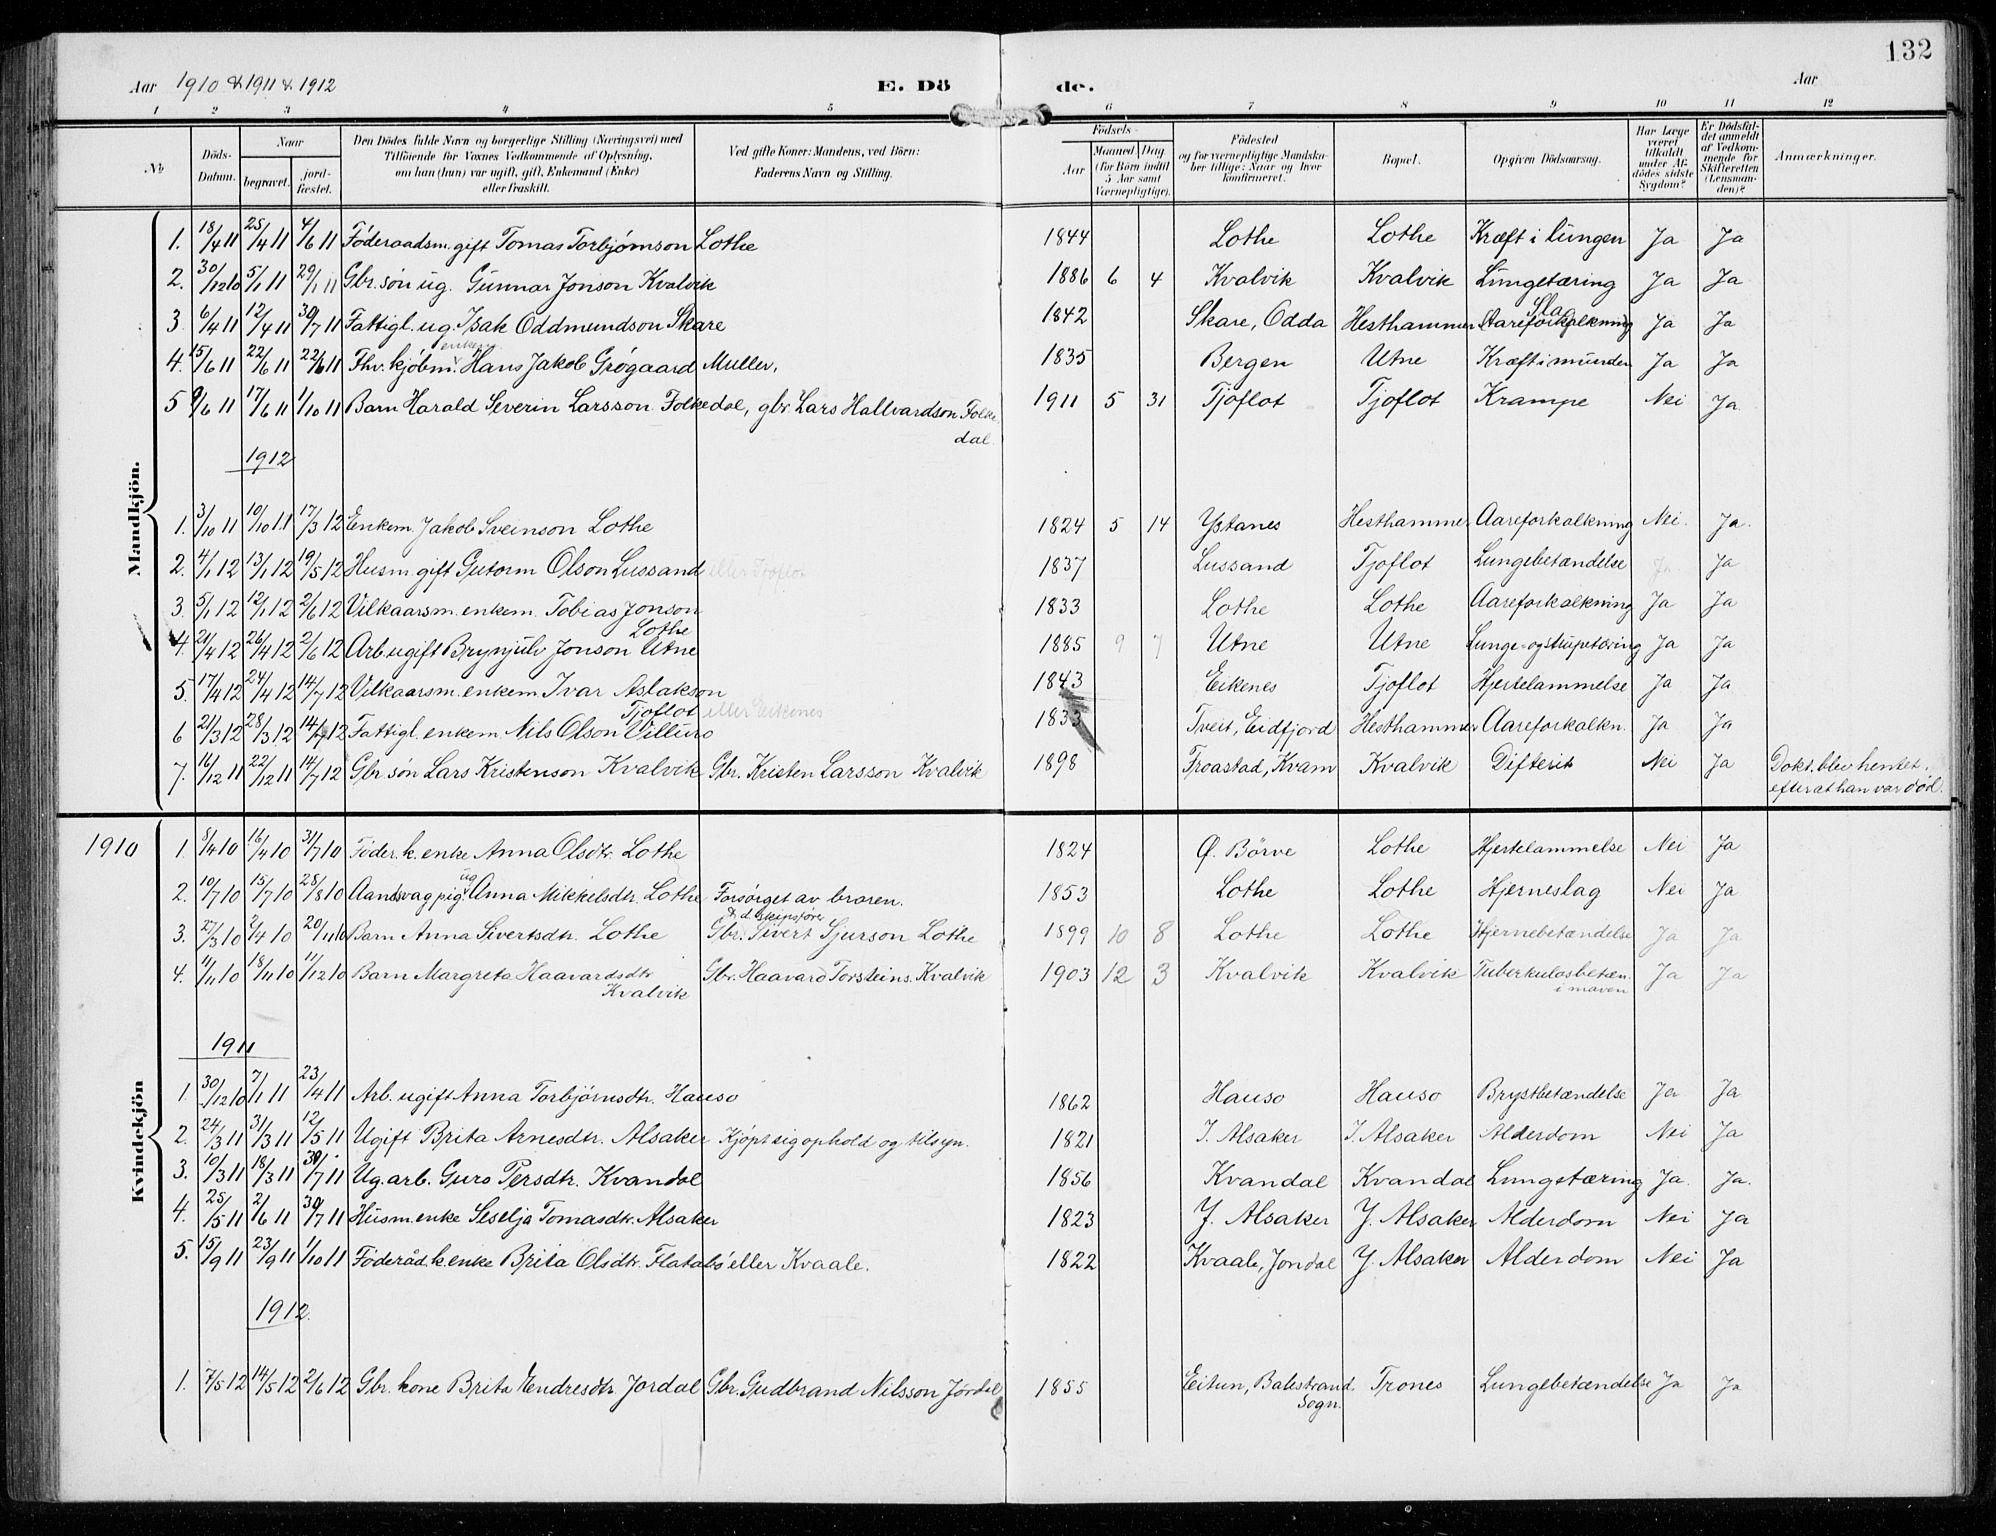 132
Aar 1910 & 1911 & 1912 E. Dö de. Aar
1 2 3 4 5 6 7 8 9 10 11 12
No. Döds-Datum. Naar begravet. jord-fæstet. Den Dödes fulde Navn og borgerlige Stilling (Næringsvei) med Tilföiende for Voxnes Vedkommende af Oplysning, om han (hun) var ugift, gift, Enkemand (Enke) eller fraskilt. Ved gifte Koner: Mandens, ved Börn: Faderens Navn og Stilling. Födsels- Aar Maaned Dag (for Börn indtil 5 Aar samt Værnepligtige). Födested og for værnepligtige Mandska-ber tillige: Naar og hvor konfirmeret. Bopæl. Opgiven Dödsaarsag. Har Læge været tilkaldt under Af-dödes sidste Sygdom? Er Dödsfal-det anmeldt af Vedkom-mende for Skifteretten (Lensman-den)? Anmærkninger.
Mandkjön.
1. 18/4 11 25/4 11 4/6 11 Föderaadsm. gift Tomas Torbjørnson Lothe 1844 Lothe Lothe Kræft i lungen Ja Ja
2. 30/12 10 5/1 11 29/1 11 Gbr. søn ug. Gunnar Jonson Kvalvik 1886 6 4 Kvalvik Kvalvik Lungetæring Ja Ja
3. 6/4 11 12/4 11 30/7 11 Fattigl. ug. Isak Oddmundson Skare 1842 Skare, Odda Hesthammer Aareforkalkning Slag Ja Ja
4. 15/6 11 22/6 11 22/6 11 Fhv. kjøbm. enkem. Hans Jakob Grøgaard Muller, 1835 Bergen Utne Kræft i munden Ja Ja
5 9/6 11 17/6 11 1/10 11 Barn Harald Severin Larsson Folkedal, gbr. Lars Hallvardson Folke 1911 5 31 Tjoflot Tjoflot Krampe Nei Ja.
dal.
1912
1. 3/10 11 10/10 11 17/3 12 Enkem. Jakob Sveinson Lothe 1824 5 14 Ystanes Hesthammer Aareforkalkning Nei. Ja.
2. 4/1 12 13/1 12 19/5 12 Husm. gift Gutorm Olson Lussand eller Tjoflot 1837 Lussand Tjoflot Lungebetændelse Ja. Ja
3. 5/1 12 12/1 12 2/6 12 Vilkaarsm. enkem. Tobias Jonson 1833 Lothe Lothe Aareforkalkning Ja Ja
Lothe
4. 21/4 12 26/4 12 2/6 12 Arb. ugift Brynjulv Jonson Utne 1885 9 7 Utne Utne Lunge- og strupetæring Ja Ja
5. 17/4 12 24/4 12 14/7 12 Vilkaarsm. enkem. Ivar Aslakson 1843 Eikenes Tjoflot Hjertelammelse Ja Ja
Tjoflot eller Eikenes
6 21/3 12 28/3 12 14/7 12 Fattigl. enkem. Nils Olson Villuro 1833 Tveit, Eidfjord Hesthammer Aareforkalkn. Ja Ja
7. 16/12 11 22/12 11 14/7 12 Gbr. søn Lars Kristenson Kvalvik Gbr. Kristen Larsson Kvalvik 1898 Froastad, Kvam Kvalvik Difterit Nei Ja Dokt. blev hentet
efter at han var død.
Kvindekjön
1910 1. 8/4 10 16/4 10 31/7 10 Föder. k. enke Anna Olsdtr. Lothe 1824 Ø. Börve Lothe Hjertelammelse Nei Ja
2. 10/7 10 15/7 10 28/8 10 Aandsvag pige ug. Anna Mikkelsdtr. Lothe Forsørget av broren. 1853 Lothe Lothe Hjerneslag Nei Ja
& d. skipsfører
3. 27/3 10 2/4 10 20/11 10 Barn Anna Sivertsdtr. Lothe Gbr. Sivert Sjurson Lothe 1899 10 8 Lothe Lothe Hjernebetændelse Ja Ja
4. 11/11 10 18/11 10 11/12 10 Barn Margreta Haavardsdtr Gbr. Haavard Torsteins. Kvalvik 1903 12 3 Kvalvik Kvalvik Tuberkulosbetæn. Ja Ja
Kvalvik i maven
1911
1. 30/12 10 7/1 11 23/4 11 Arb. ugift Anna Torbjørnsdtr. Hauso 1862 Hauso Hauso Brystbetændelse Ja Ja
2. 24/3 11 31/3 11 12/5 11 Ugift Brita Arnesdtr. Alsaker Kjøpt sig ophold og tilsyn. 1821 I. Alsaker I. Alsaker Alderdom Nei Ja
3. 10/3 11 18/3 11 30/7 11 Ug. arb. Guro Persdtr. Kvandal 1856 Kvandal Kvandal Lungetæring Ja. Ja.
4. 25/5 11 2/6 11 30/7 11 Husm. enke Seselja Tomasdtr. Alsaker 1823 Y. Alsaker Y. Alsaker Alderdom Nei Ja
5. 15/9 11 23/9 11 1/10 11 Föderåd k. enke Brita Olsdtr. Flatabö eller Kvaale. 1822 Kvaale, Jondal Y. Alsaker Alderdom Nei Ja
1912.
1. 7/5 12 14/5 12 2/6 12 Gbr. kone Brita Endresdtr Jordal Gbr. Gudbrand Nilsson Jordal 1855 Eitun, Balestrand. Trones Lungebetændelse Ja Ja
Sogn.